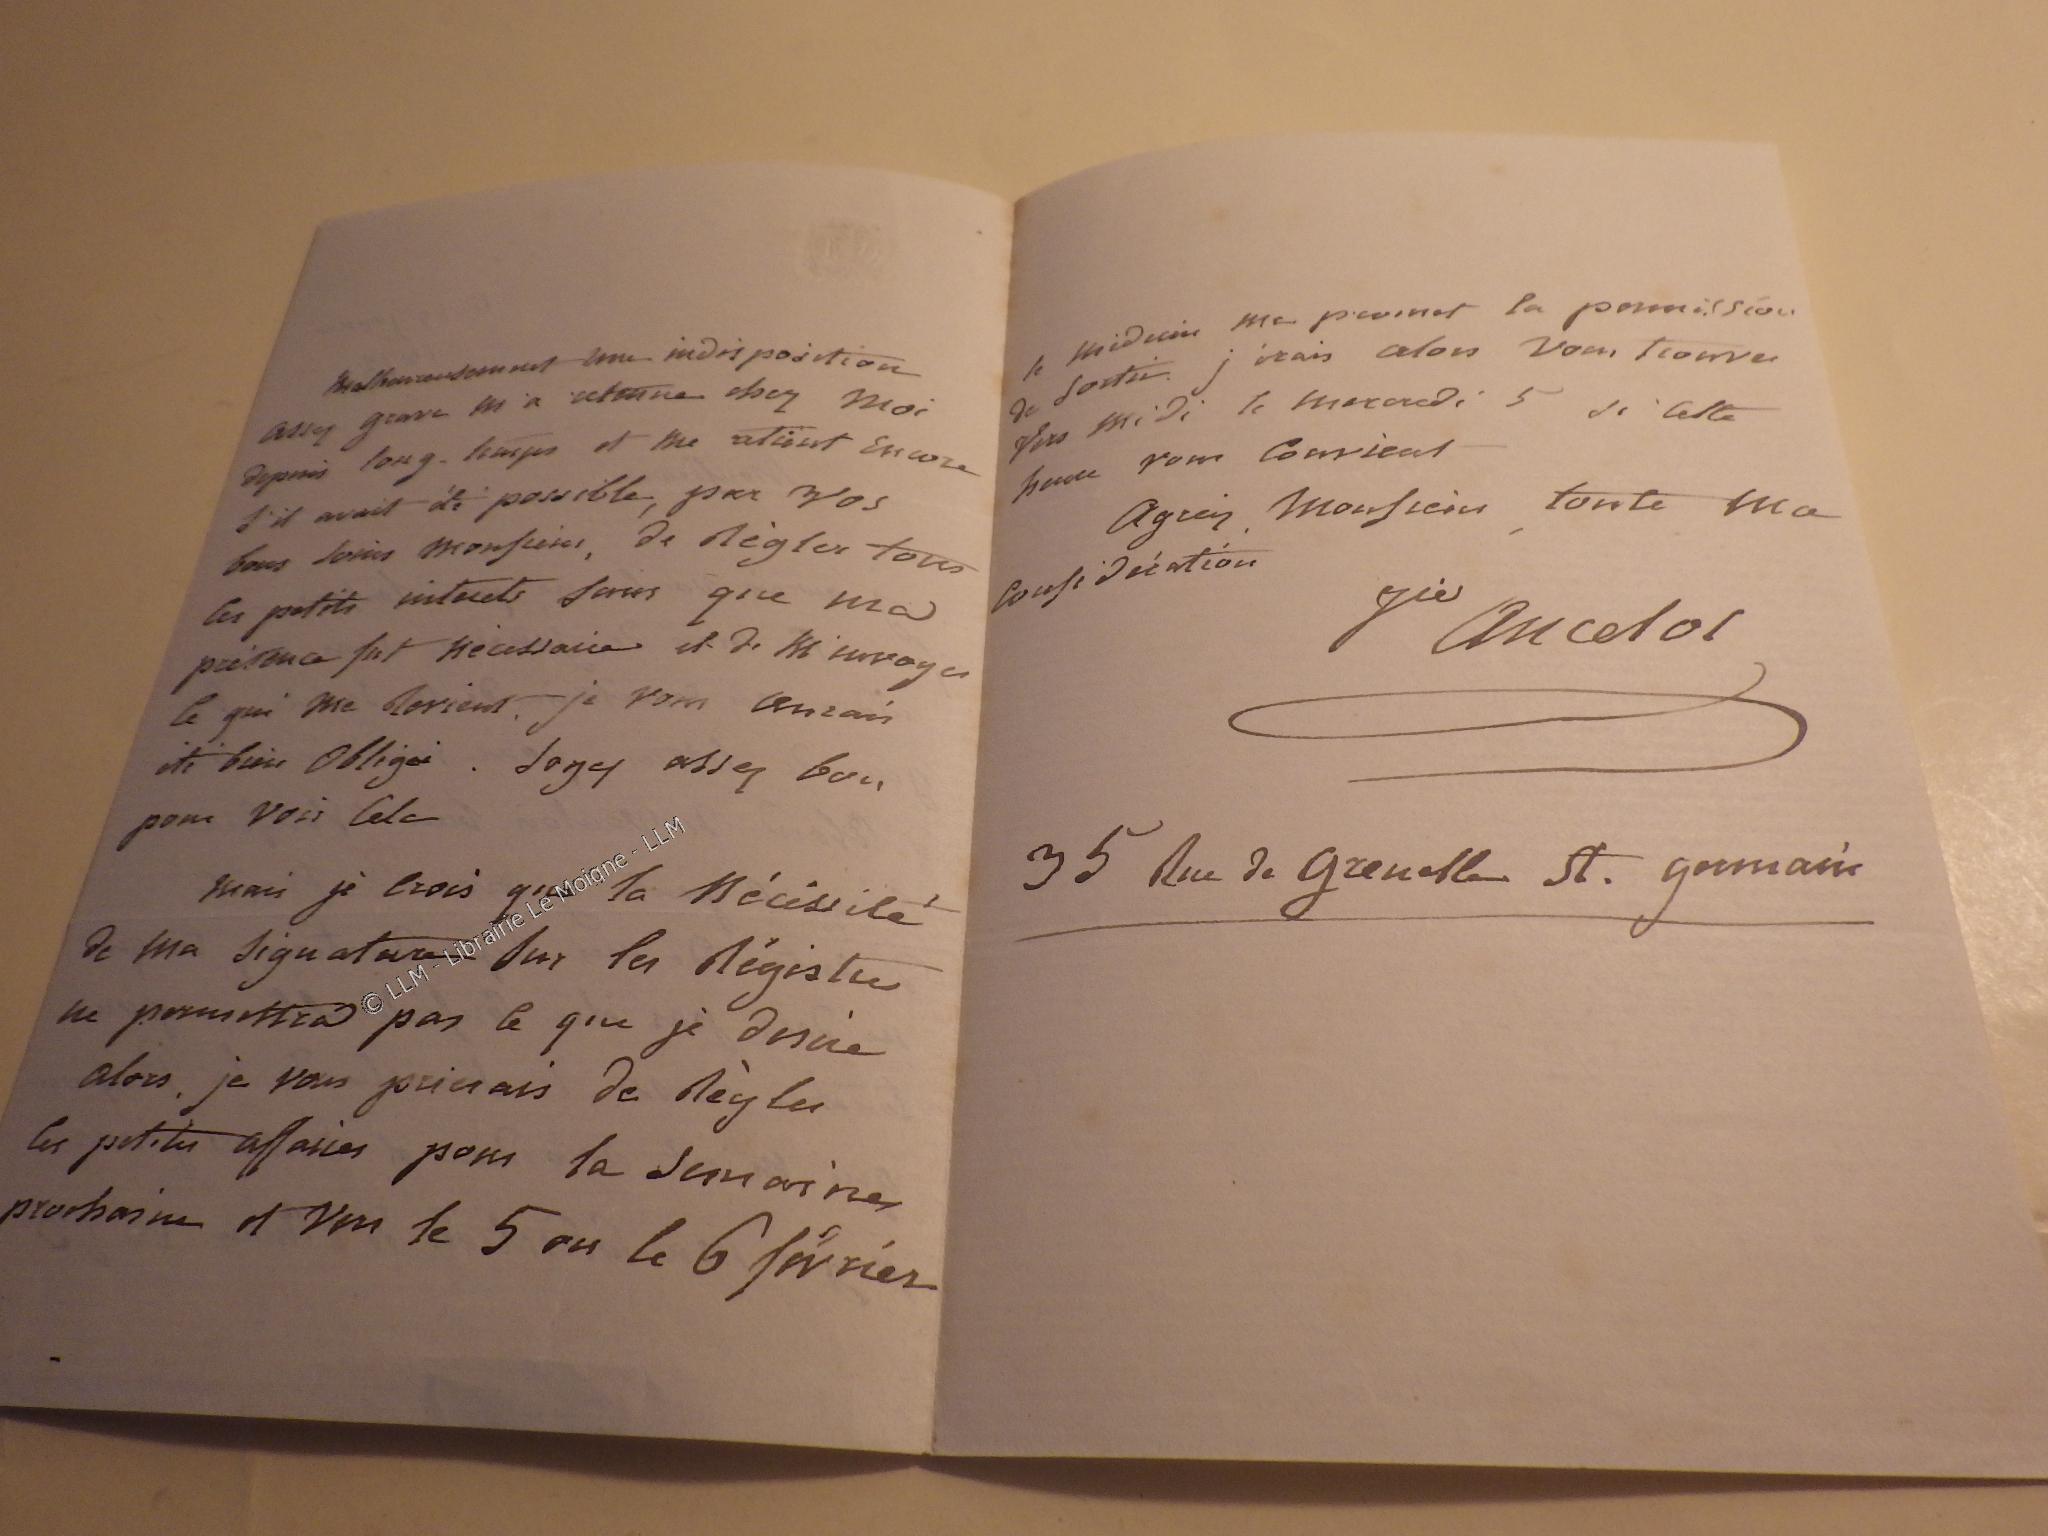 Malheureusement une indisposition
assez grave m'a retenue chez moi
depuis long-temps et me retient encore
s'il avait été possible, par vos
bons soins monsieur, de régler tous
ces petits interets sans que ma
présence fut nécessaire et de m'envoyer
ce qui me revient, je vous aurais
été bien obligée. Soyez assez bon
pour voir cela
mais je crois que la nécéssité
de ma signature sur les régistres
ne permettra pas ce que je desire
alors, je vous prierais de régler
ces petites affaires pour la semaine
prochaine et vers le 5 ou le 6 février
le médecin me promet la permission
de sortir. j'irais alors vous trouver
vers midi le mercredi 5 si cette
heure vous convient
Agréez, Monsieur, toute ma
considération
Vie
Ancelot
35 Rue de Grenelle St. germain
© LLM - Librairie Le Moigne - LLM